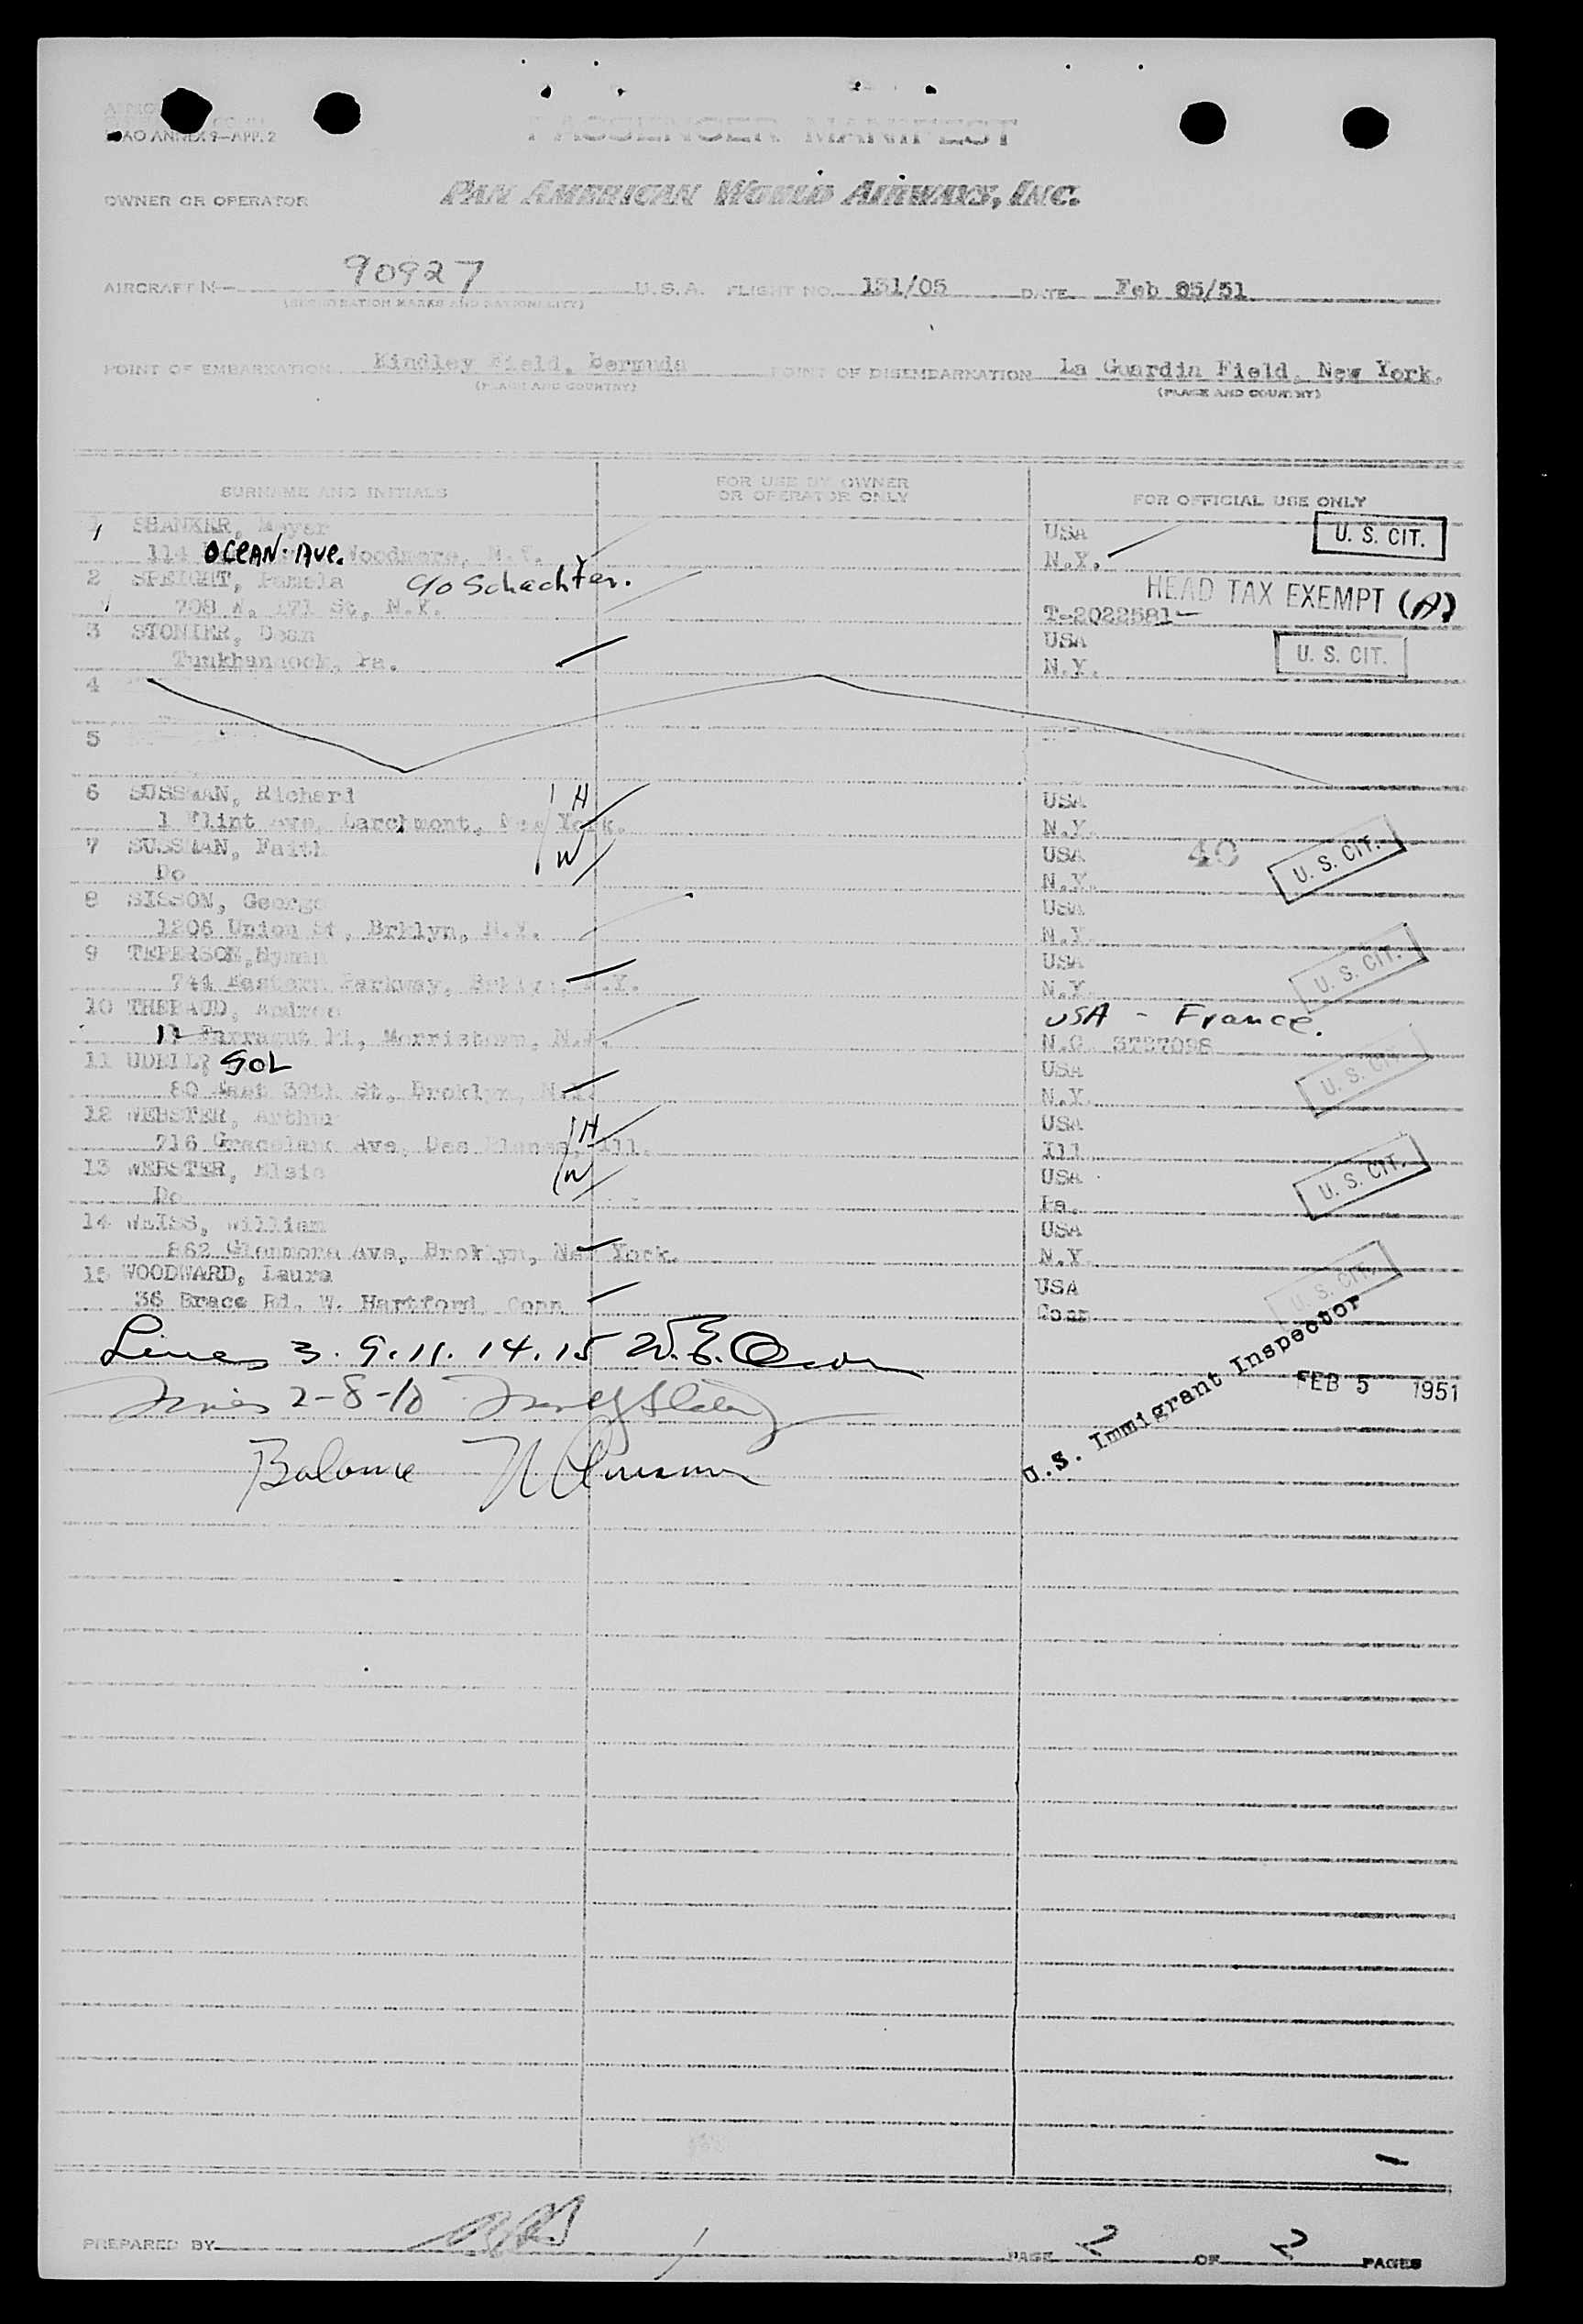 ICAO ANNEX 9—APP. 2
PASSENGER MANIFEST
OWNER OR OPERATOR PAN AMERICAN WORLD AIRWAYS, INC.
AIRCRAFT N— 90927 U.S.A. FLIGHT NO. 131/05 DATE Feb 05/51
(REGISTRATION MARKS AND NATIONALITY)
POINT OF EMBARKATION Kindley Field, Bermuda POINT OF DISEMBARKATION La Guardia Field, New York.
(PLACE AND COUNTRY) (PLACE AND COUNTRY)
SURNAME AND INITIALS FOR USE BY OWNER OR OPERATOR ONLY FOR OFFICIAL USE ONLY
1 SHANKER, Meyer USA U. S. CIT.
114 OCEAN AVE. Woodmere, N.Y. N.Y.
2 SPEIGHT, Pamela c/o Schachter. HEAD TAX EXEMPT (A)
708 W. 171 St, N.Y. T-2022581
3 STONIER, Dean USA U. S. CIT.
Tunkhannock, Pa. N.Y.
4
5
6 SUSSMAN, Richard H USA
1 Flint Ave, Larchmont, New York. N.Y.
7 SUSSMAN, Faith W USA 40 U. S. CIT.
Do N.Y.
8 SISSON, George USA
1206 Union St, Brklyn, N.Y. N.Y.
9 TEPERSON, Hyman USA U. S. CIT.
744 Eastern Parkway, Brklyn, N.Y. N.Y.
10 THEBAUD, Andree USA - France.
12 Farragut Pl, Morristown, N.J. N.C 3737098
11 UDELL, SOL USA U. S. CIT.
80 East 39th St, Broklyn, N.Y. N.Y.
12 WEBSTER, Arthur H USA
716 Graceland Ave, Des Planes, Ill. Ill
13 WEBSTER, Elsie W USA U. S. CIT.
Do Pa.
14 WEISS, William USA
862 Glenmore Ave, Broklyn, New York. N.Y.
15 WOODWARD, Laura USA U. S. CIT.
36 Brace Rd. W. Hartford, Conn Conn
Lines 3. 9. 11. 14. 15 W. E.
Lines 2-8-10
U.S. Immigrant Inspector FEB 5 1951
Balance
PREPARED BY PAGE 2 OF 2 PAGES